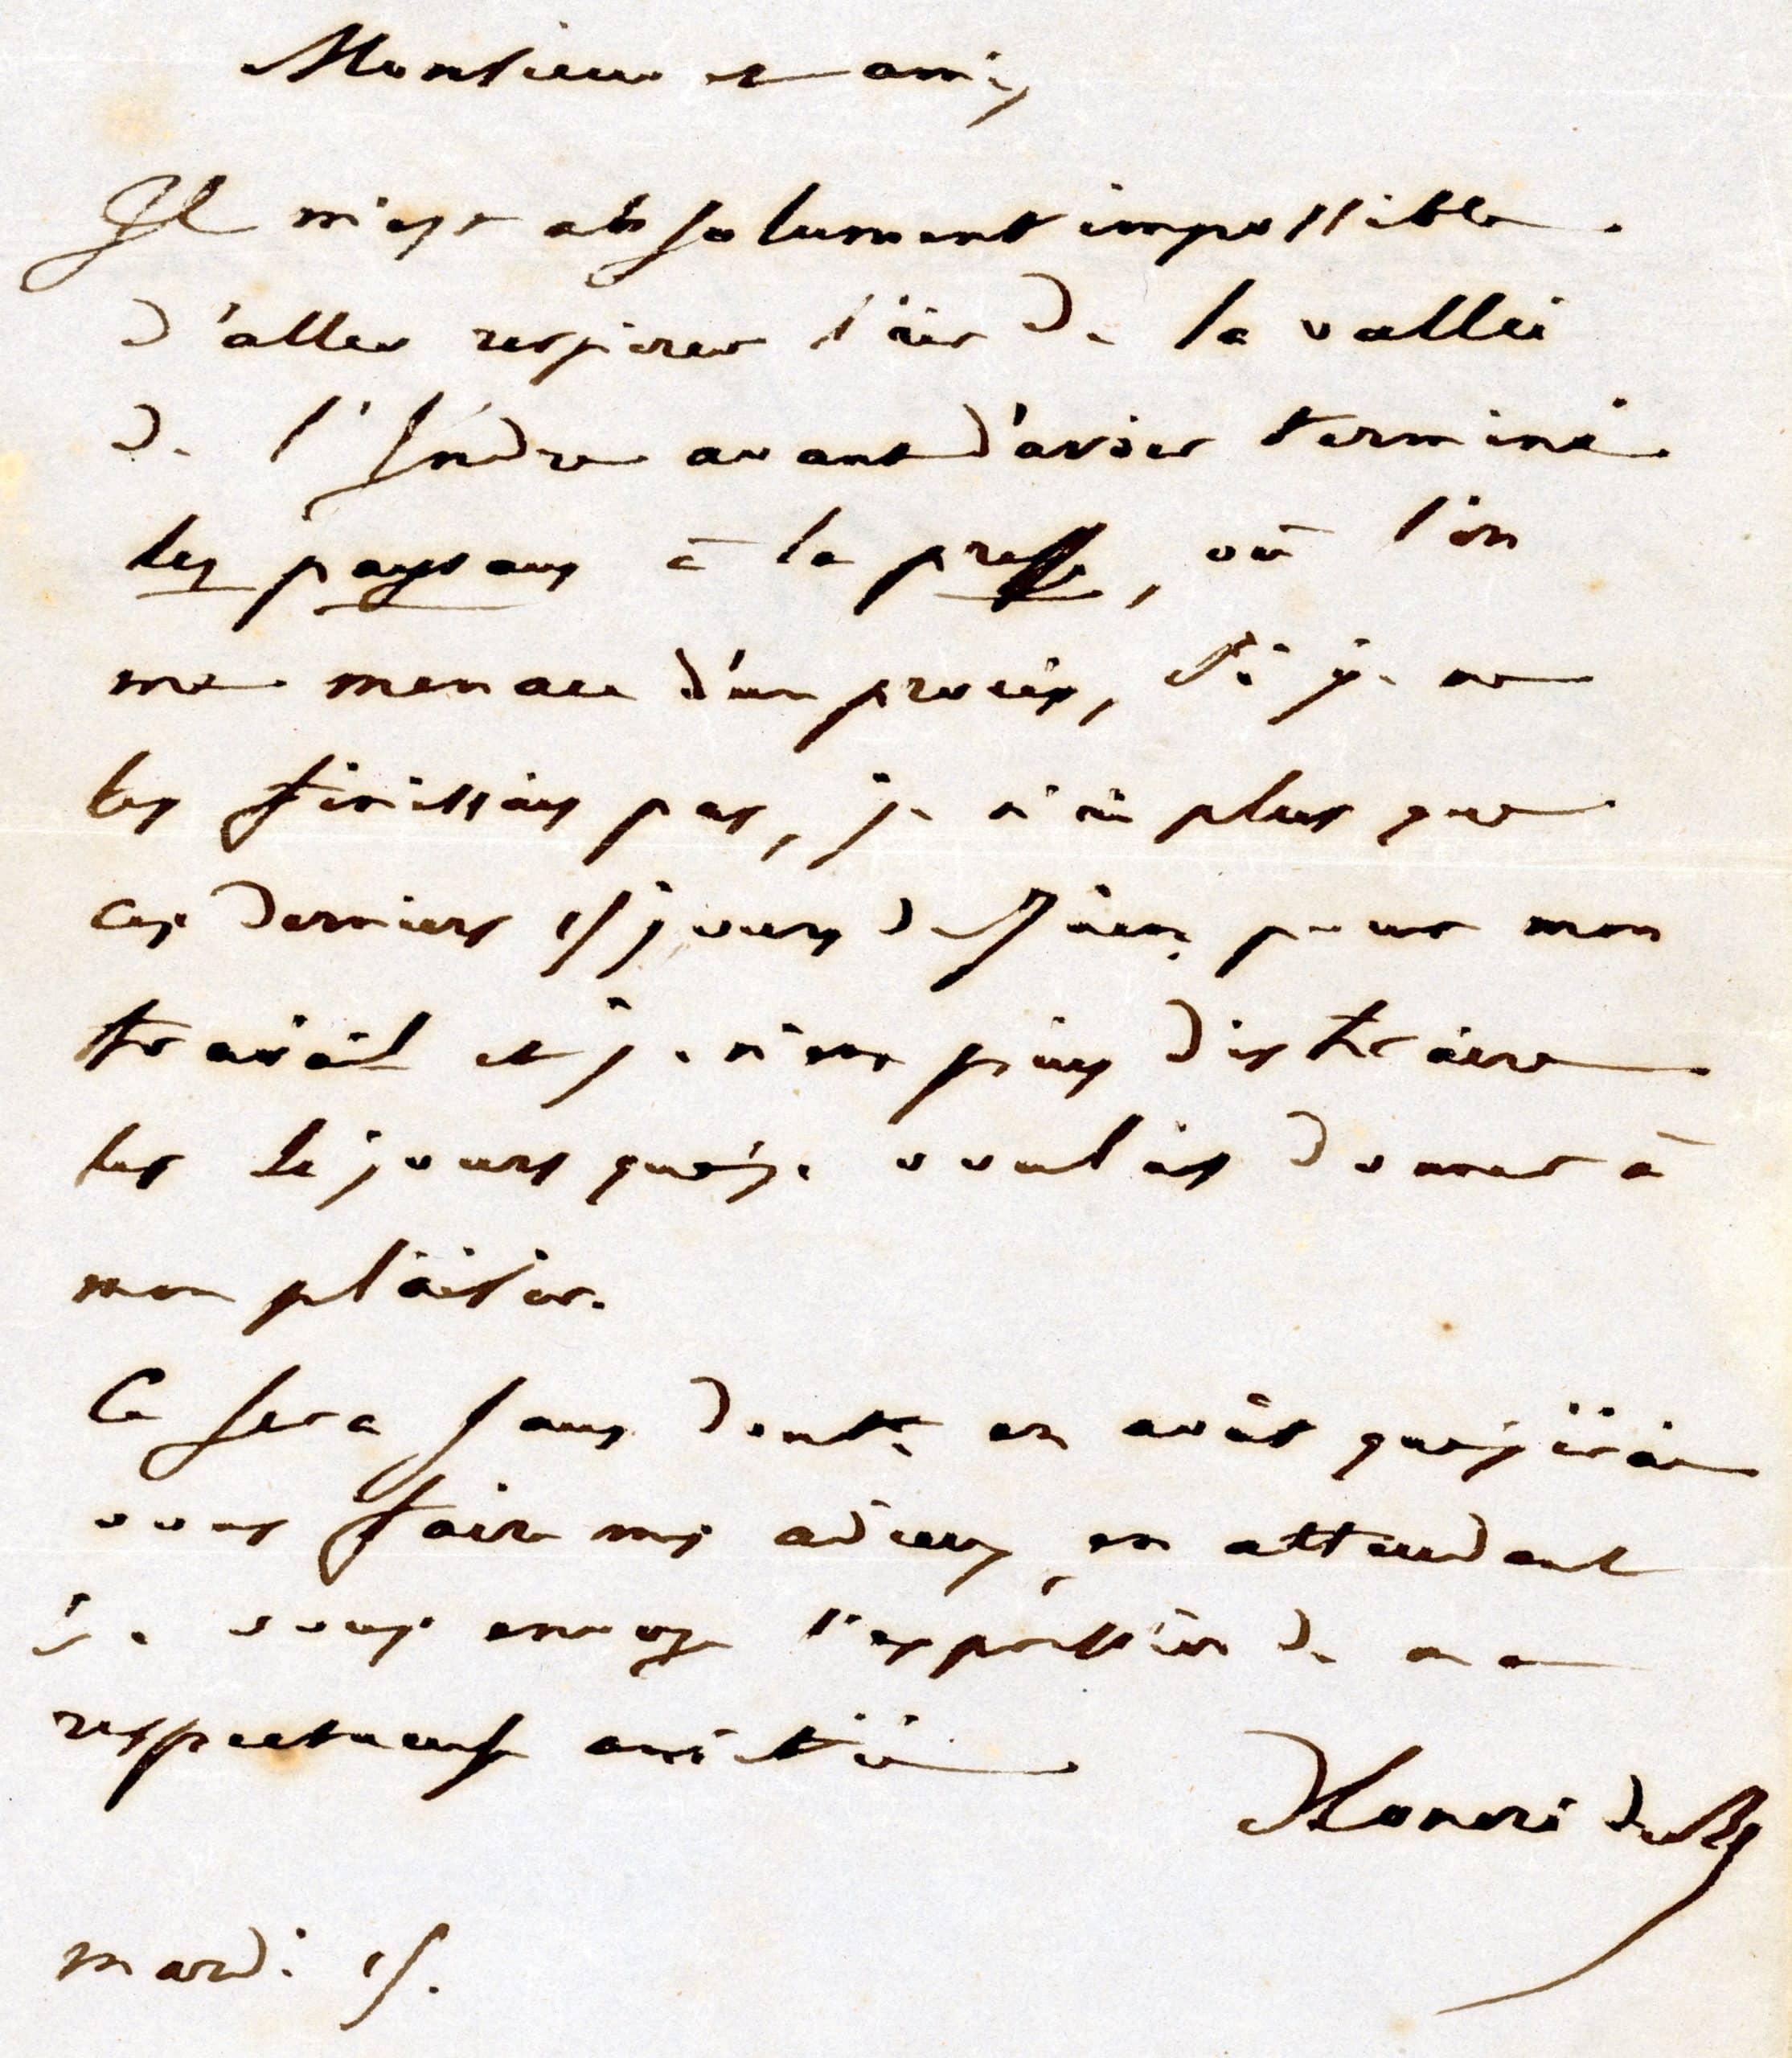 Monsieur et ami,
Il m'est absolument impossible
d'aller respirer l'air de la vallée
de l'Indre avant d'avoir terminé
les paysans à la presse, où l'on
me menace d'un procès, si je ne
les finissais pas, je n'ai plus que
ces derniers 15 jours de Juin pour mon
travail et je n'en puis distraire
les jours que je voulais donner à
mon plaisir.
Ce sera sans doute en août que j'irai
vous faire mes adieux, en attendant
je vous envoye l'expression de ma
respectueuse amitié
Honoré de B
mardi 15.